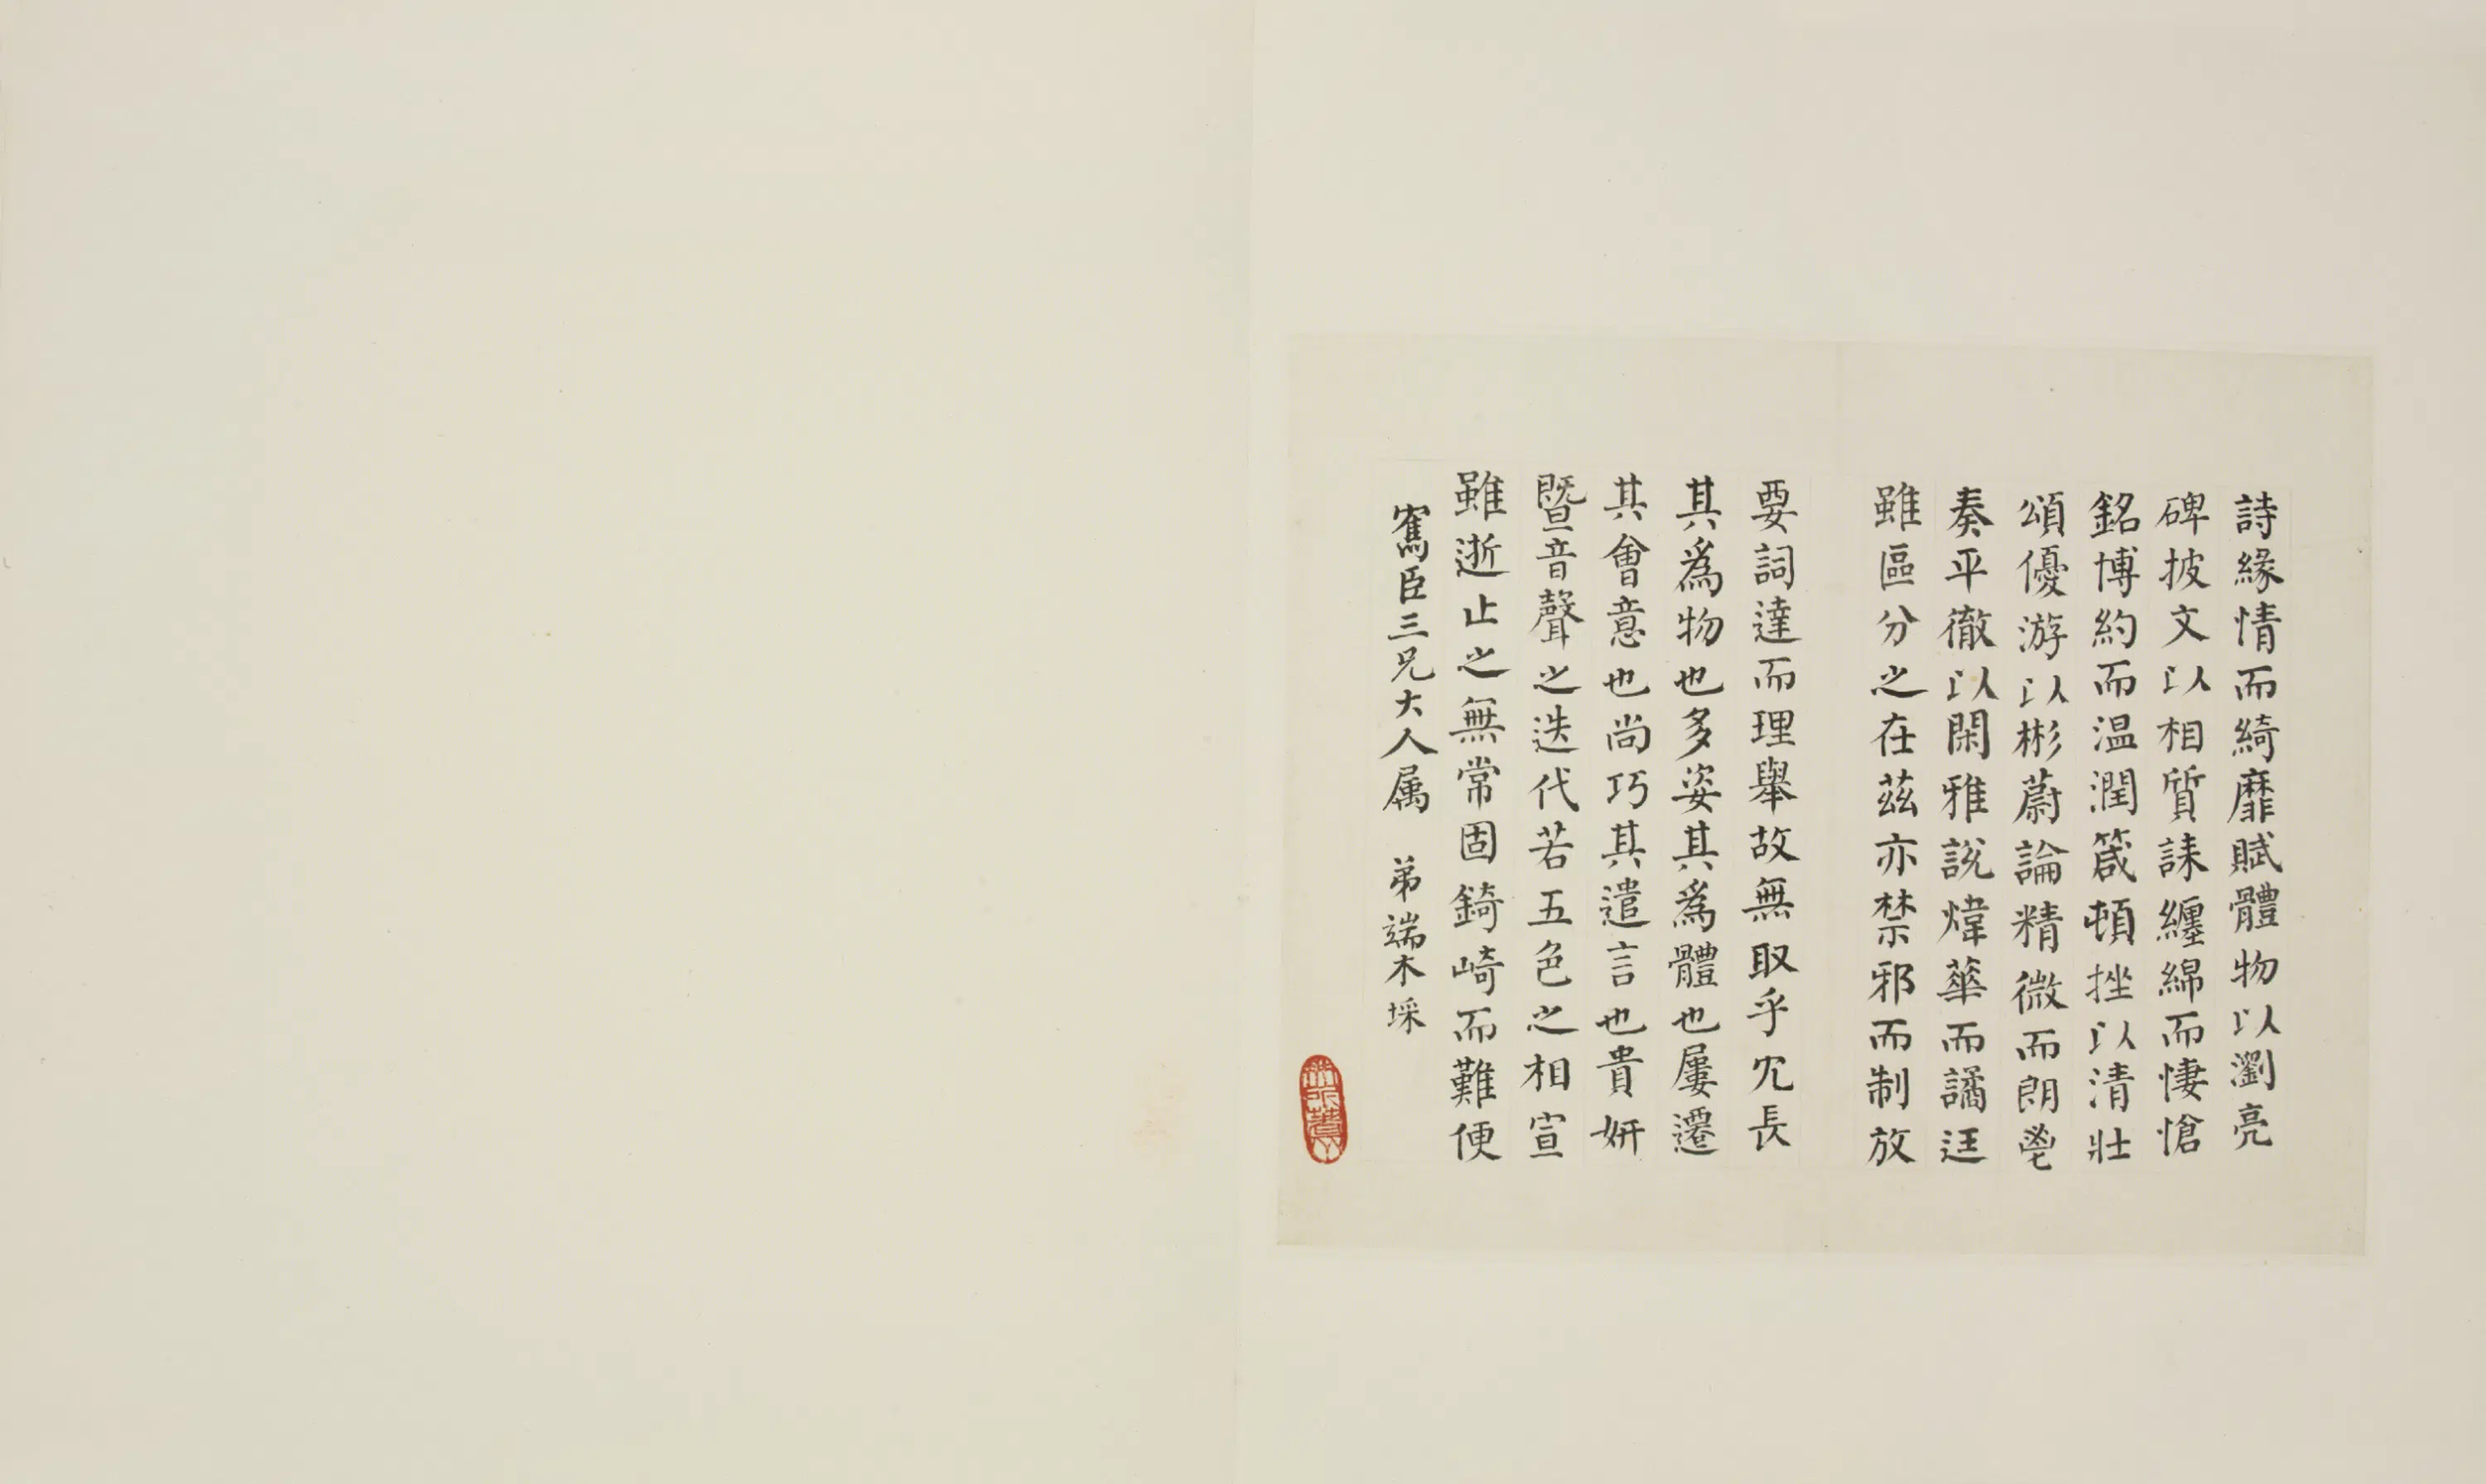 詩緣情而綺靡賦體物以瀏亮
碑披文以相質誄纏綿而悽愴
銘博約而温潤箴頓挫以清壯
頌優游以彬蔚論精微而朗鬯
奏平徹以閑雅說煒華而譎迋
雖區分之在茲亦禁邪而制放
要詞達而理舉故無取乎冗長
其爲物也多姿其爲體也屢遷
其會意也尚巧其遣言也貴妍
暨音聲之迭代若五色之相宣
雖逝止之無常固錡崎而難便
鶱臣三兄大人属 弟端木埰